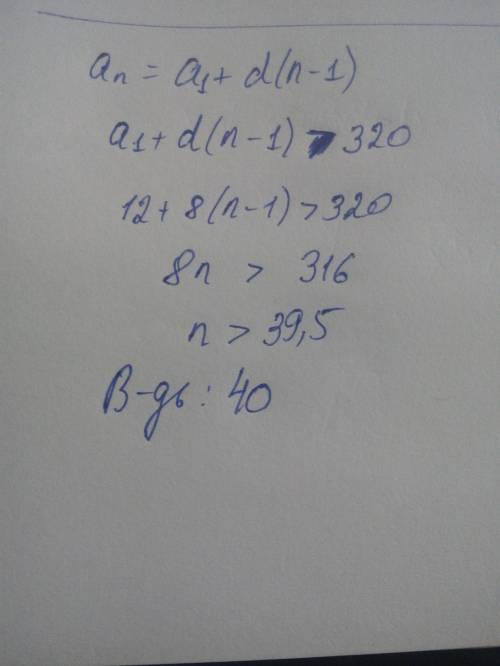 an = a1 + d(n-1)
a1 + d(n-1) > 320
12 + 8(n-1) > 320
8n > 316
n > 39,5
В-дь: 40